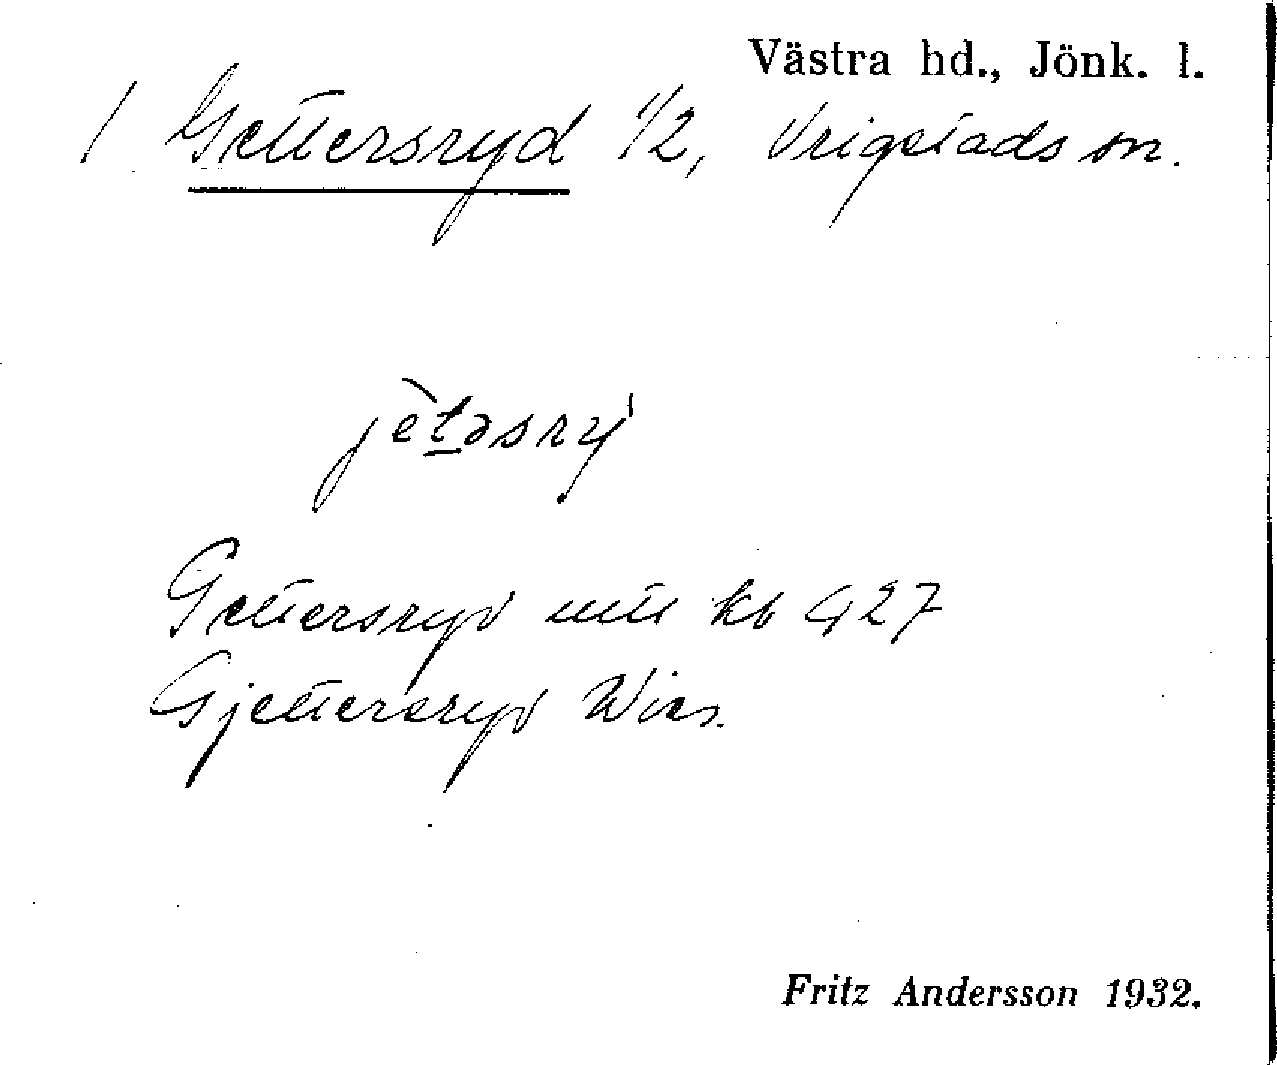 Västra hd., Jönk. l.
/ Gettersryd 1/2, Vrigstads sn.
jèt̲əsrý
Gettersryd utt kb G 27
Gjettersryd Wies.
Fritz Andersson 1932.